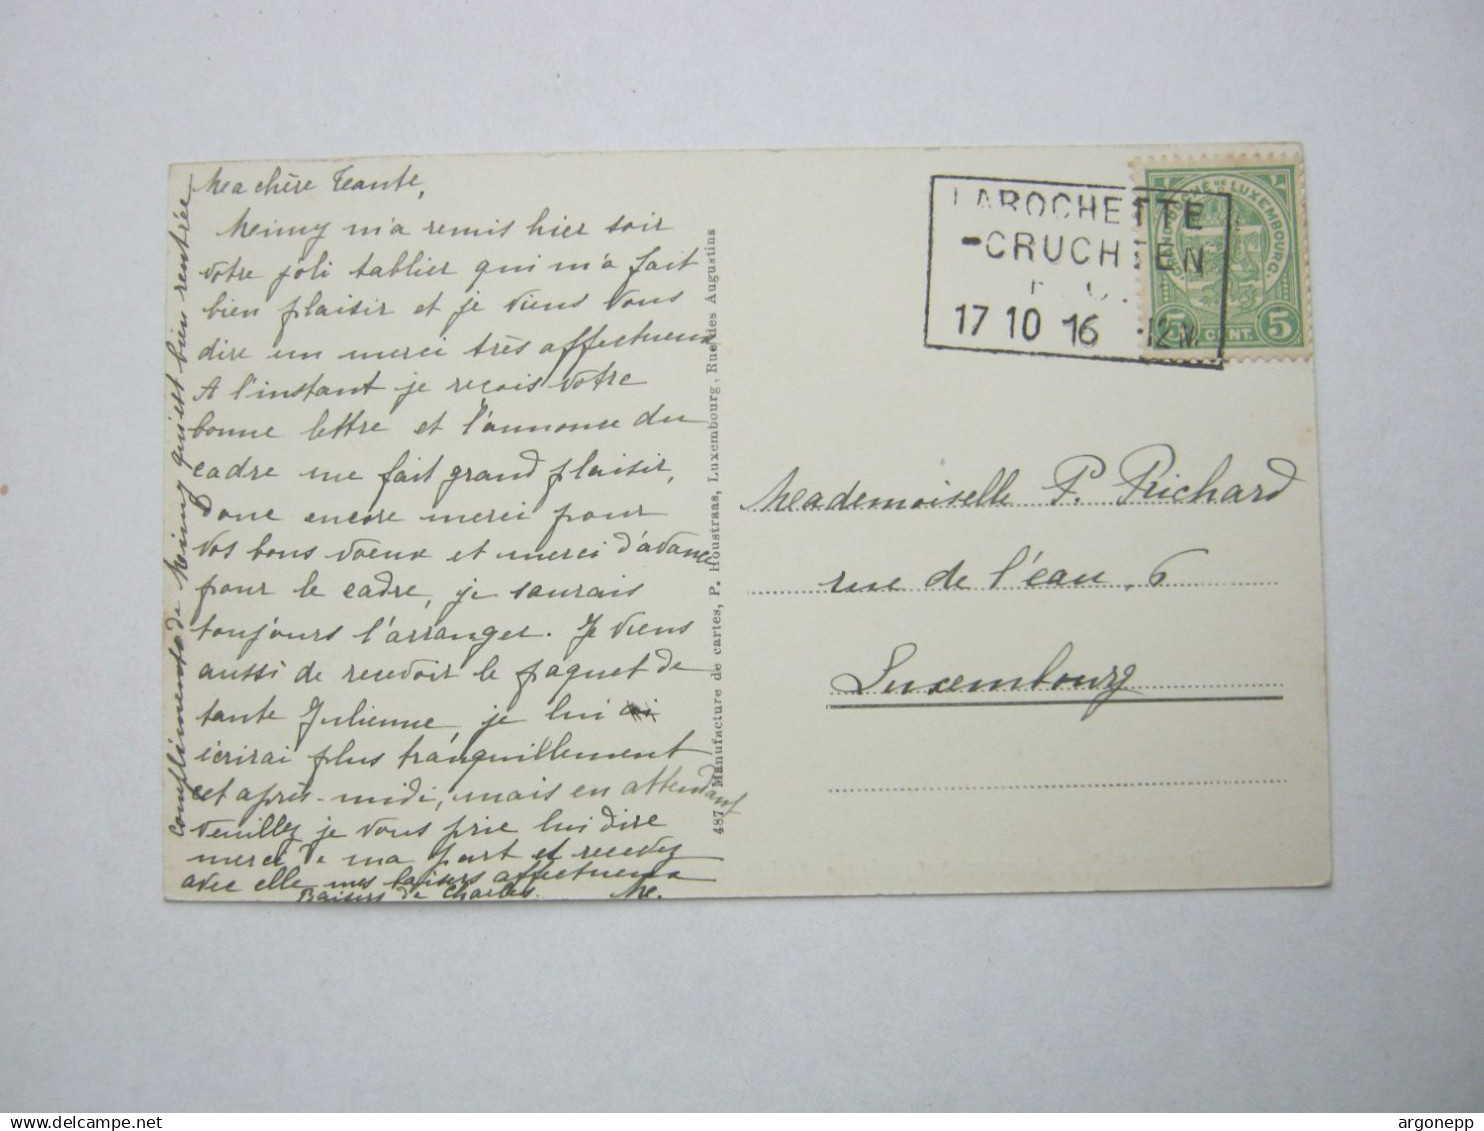 Ma chère Tante,
Meimy m'a remis hier soir
votre joli tablier qui m'a fait
bien plaisir et je viens vous
dire un merci très affectueux
A l'instant je reçois votre
bonne lettre et l'annonce du
cadre me fait grand plaisir,
Donc encore merci pour
vos bons voeux et merci d'avance
pour le cadre, je saurais
toujours l'arranger. Je viens
aussi de recevoir le paquet de
tante Julienne, je lui
écrirai plus tranquillement
cet après-midi, mais en attendant
veuillez je vous prie lui dire
merci de ma part et recevez
avec elle mes baisers affectueux
Baisers de Charles. M.
compliments de Meimy qui est bien rentrée
487 Manufacture de cartes, P. Houstraas, Luxembourg, Rue des Augustins
LAROCHETTE
-CRUCHTEN
17 10 16 12 N.
GRAND DUCHÉ DE LUXEMBOURG.
5 CENT. 5
Mademoiselle P. Richard
rue de l'eau, 6
Luxembourg
argonepp